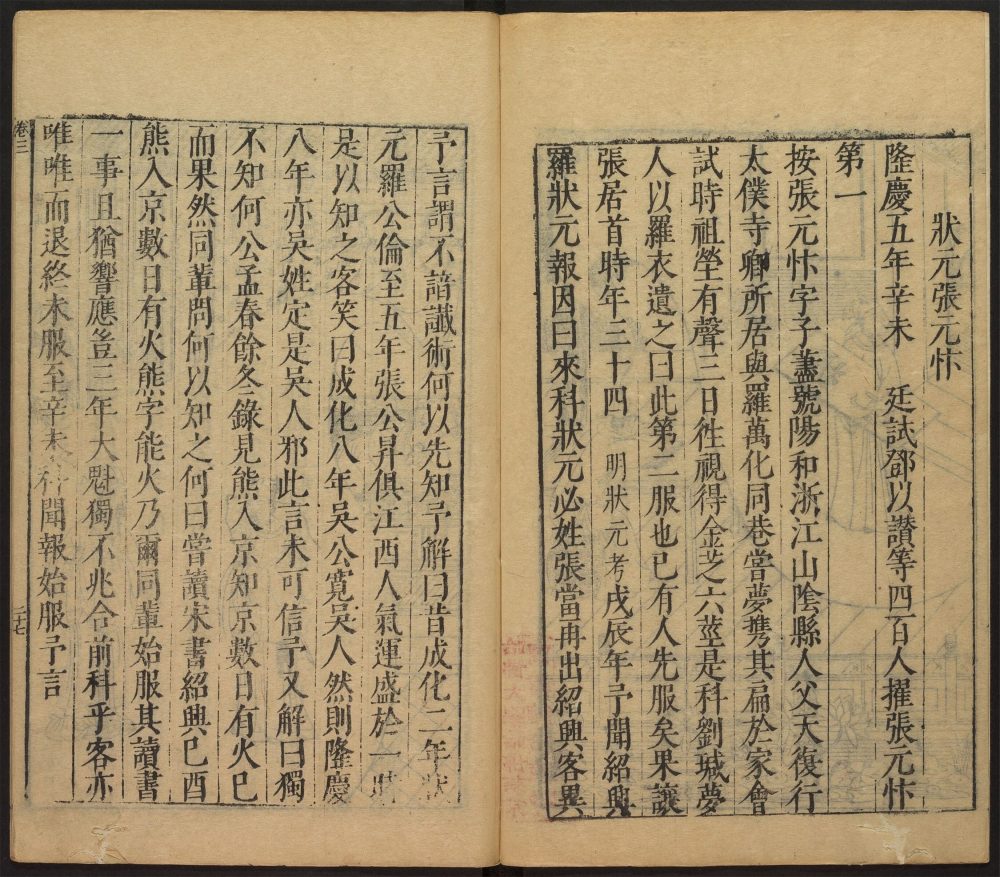 狀元張元忭
隆慶五年辛未　廷試鄧以讚等四百人擢張元忭
第一
按張元忭字子藎號陽和浙江山陰縣人父天復行
太僕寺卿所居與羅萬化同巷嘗夢携其扁於家會
試時祖塋有聲三日徃視得金芝六莖是科劉瑊夢
人以羅衣遺之曰此第二服也已有人先服矣果讓
張居首時年三十四　明狀元考戌辰年予聞紹興
羅狀元報因曰來科狀元必姓張當再出紹興客異
予言謂不諳讖術何以先知予解曰昔成化二年狀
元羅公倫至五年張公昇俱江西人氣運盛於一時
是以知之客笑曰成化八年吳公寬吳人然則隆慶
八年亦吳姓定是吳人邪此言未可信予又解曰獨
不知何公孟春餘冬錄見熊入京知京數日有火已
而果然同輩問何以知之何曰嘗讀宋書紹興己酉
熊入京數日有火熊字能火乃爾同輩始服其讀書
一事且猶響應豈三年大魁獨不兆合前科乎客亦
唯唯而退終未服至辛未科聞報始服予言
卷三
二十七